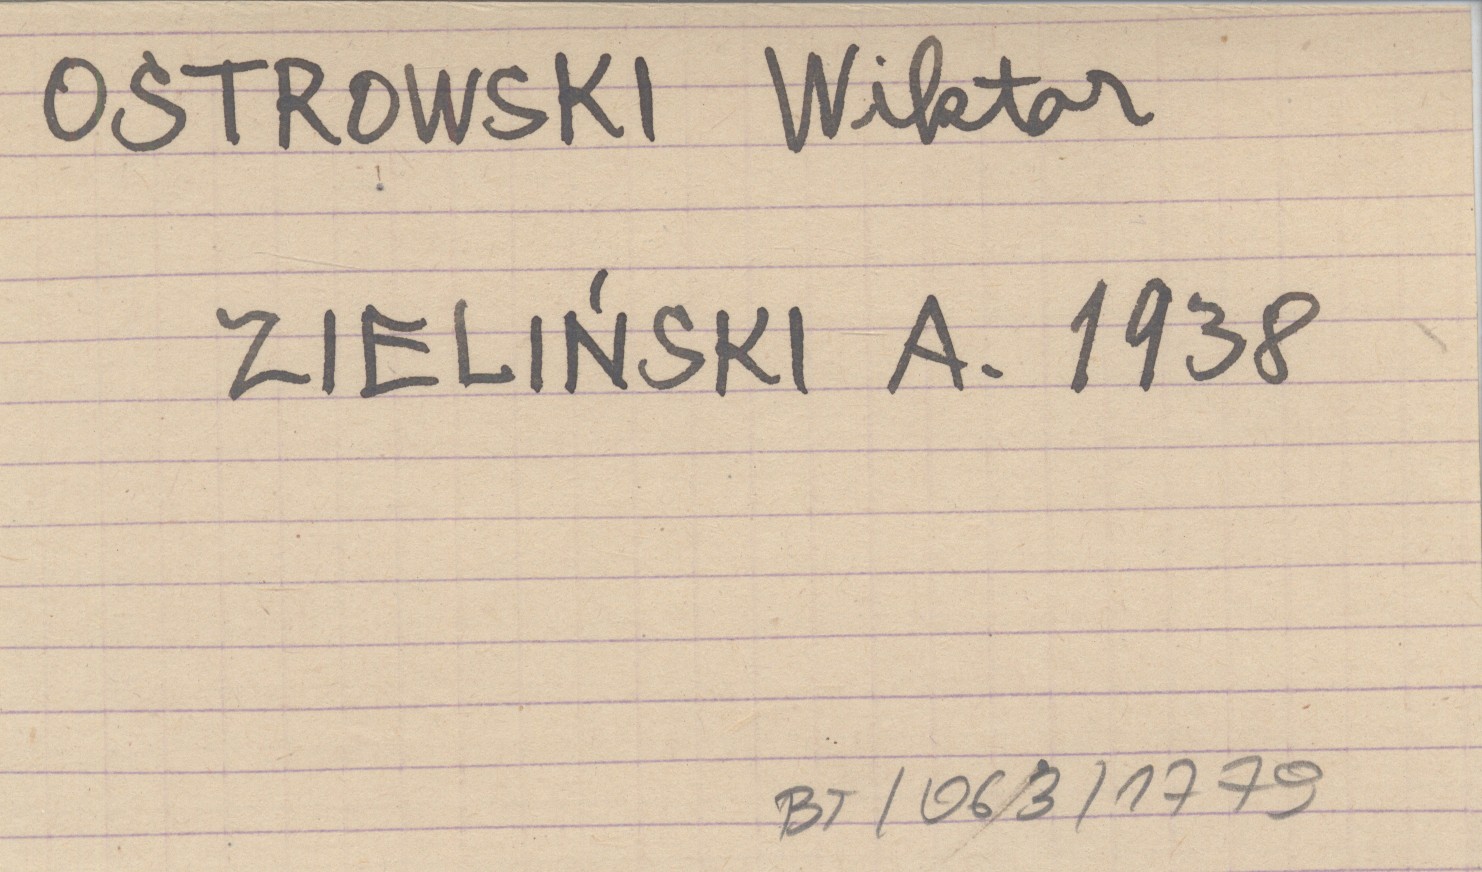 OSTROWSKI Wiktor
ZIELIŃSKI A. 1938
BT/06/3/1779